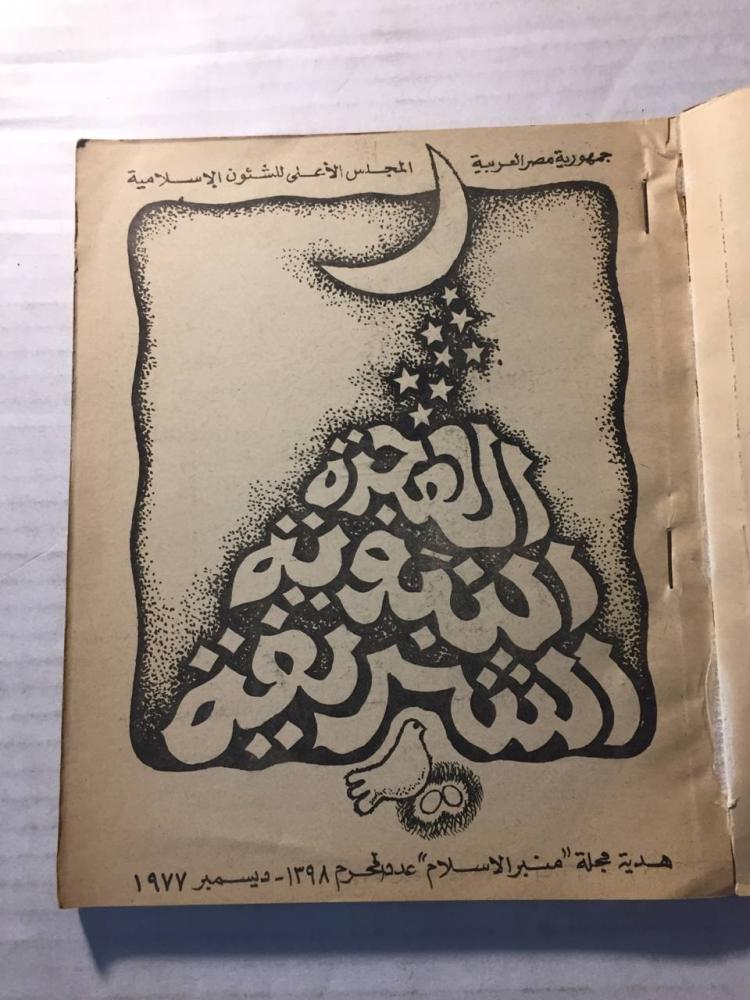 جمهورية مصر العربية المجلس الأعلى للشئون الإسلامية
الهجرة
النبوية
الشريفة
هدية مجلة "منبر الاسلام" عدد المحرم ١٣٩٨ - ديسمبر ١٩٧٧